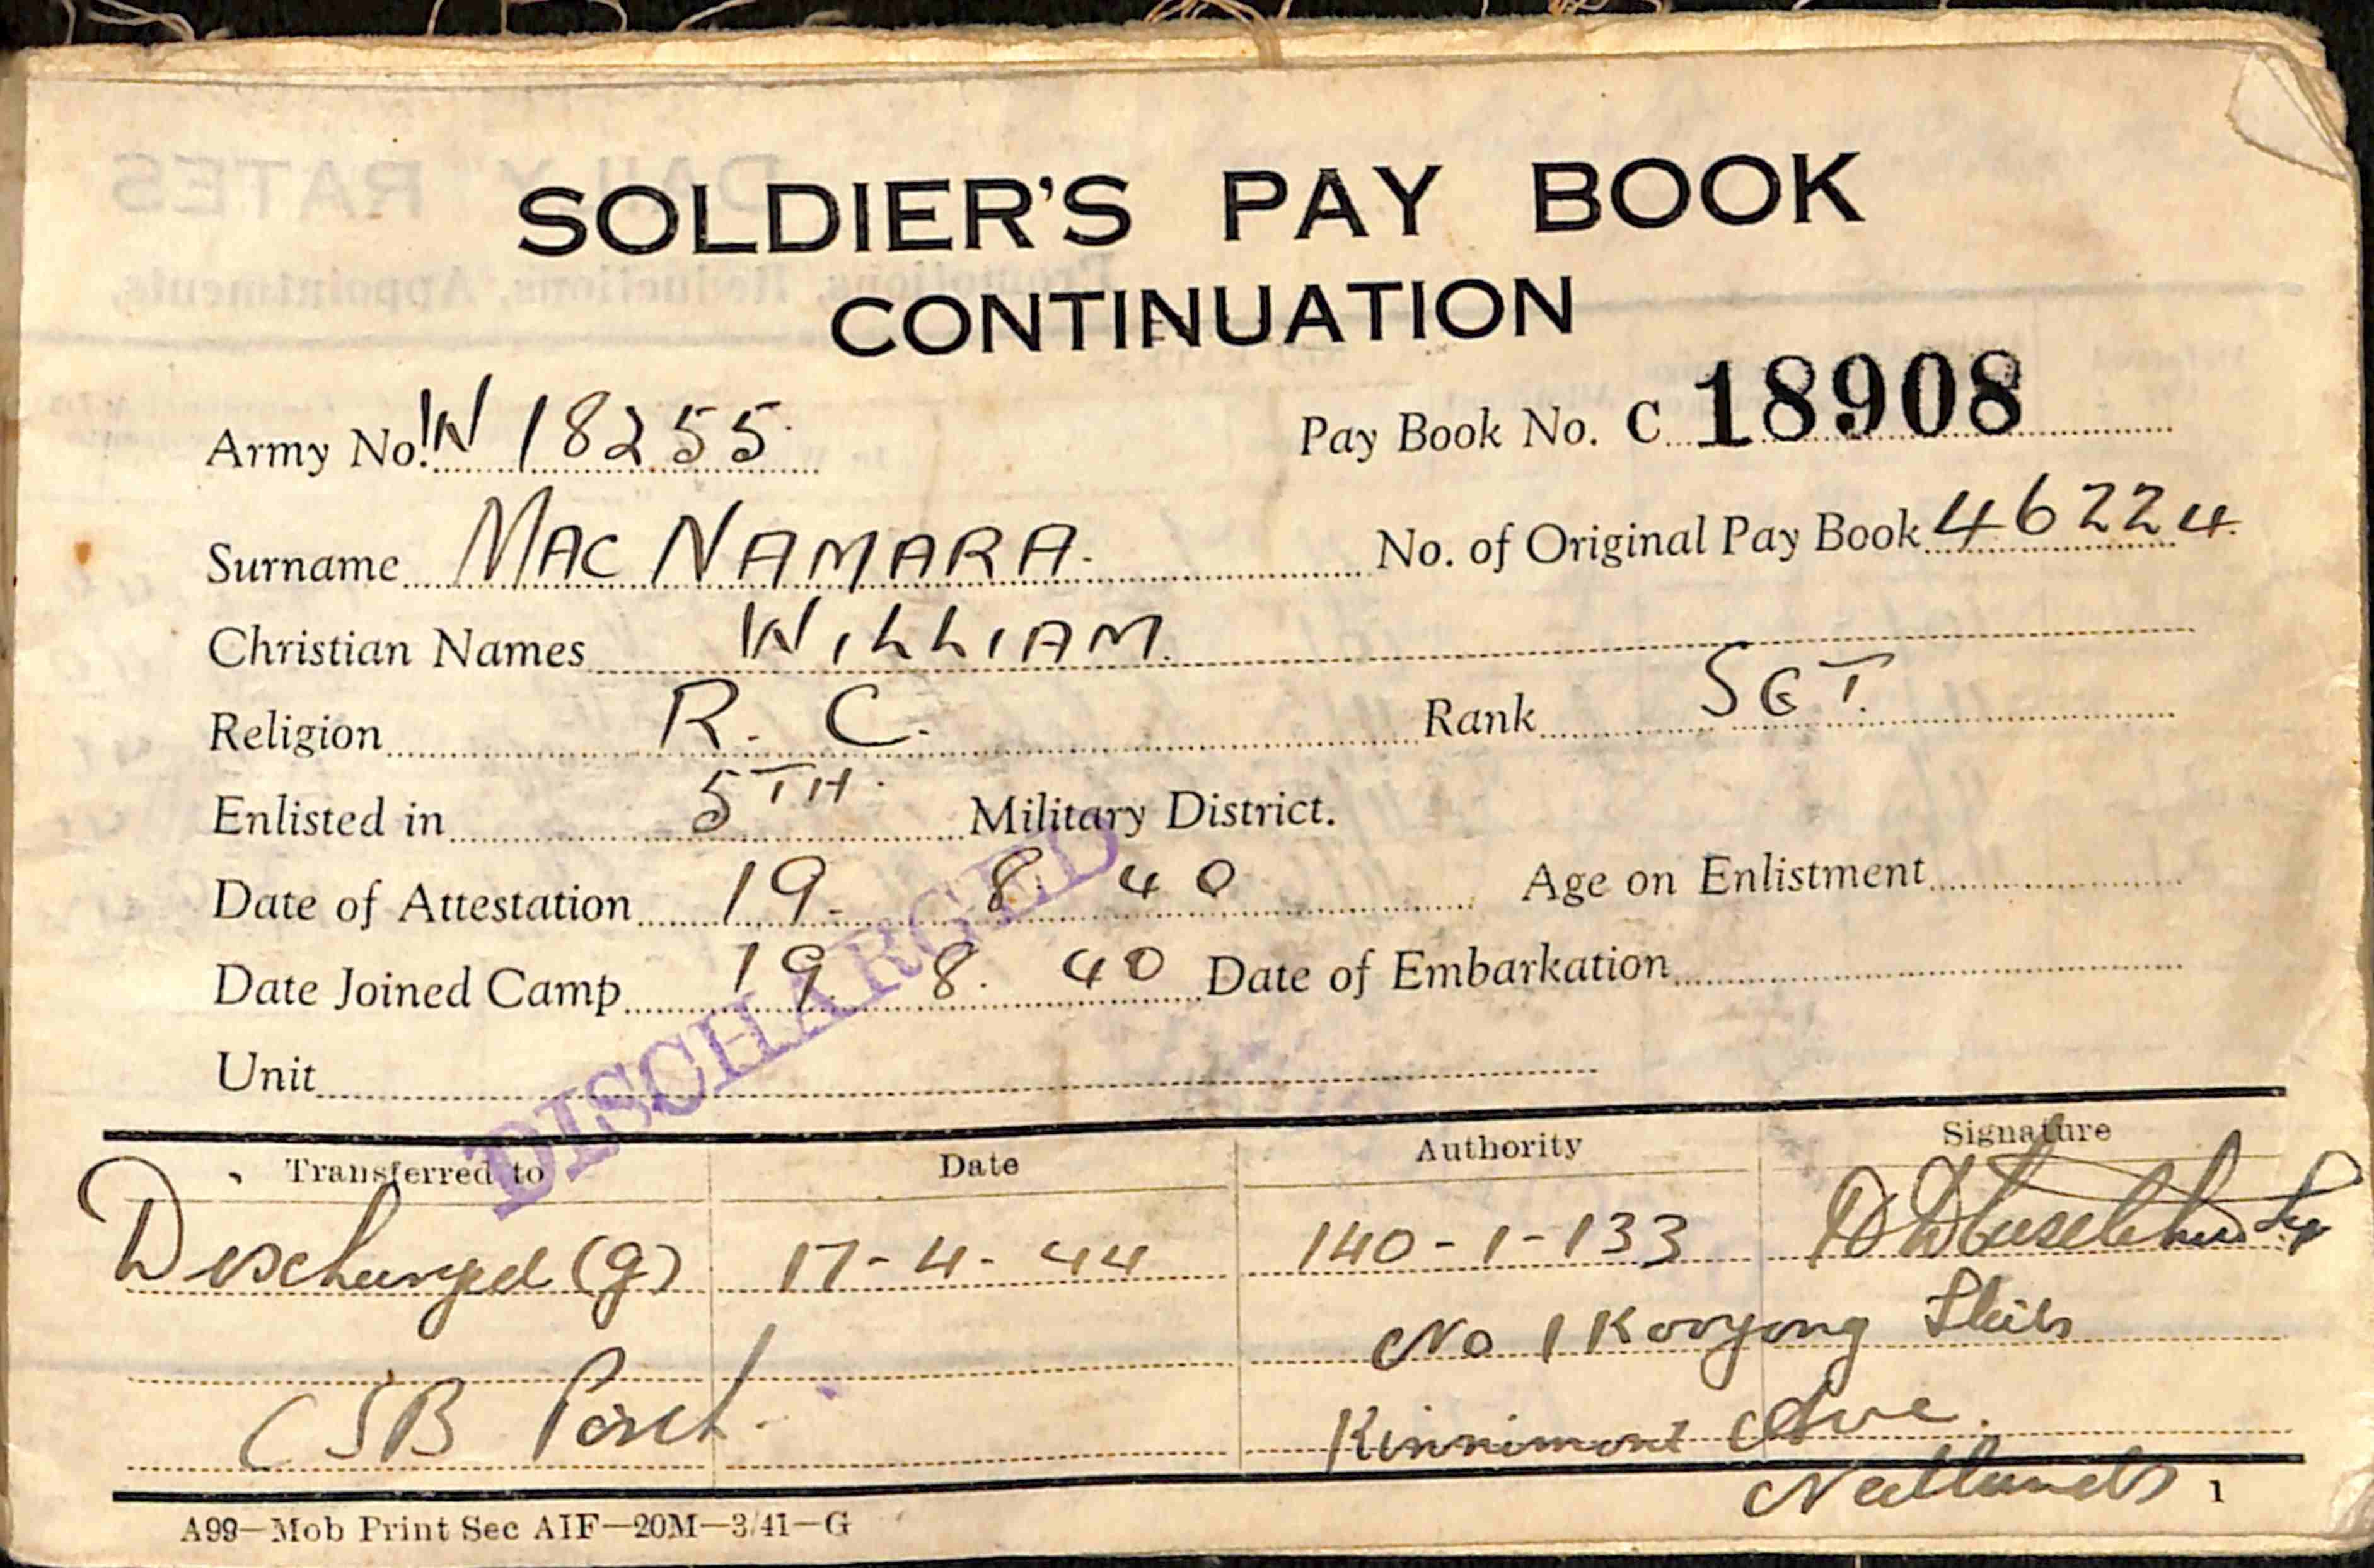 SOLDIER'S PAY BOOK
CONTINUATION
Army No. W 18255. Pay Book No. C 18908
Surname MAC NAMARA. No. of Original Pay Book 46224.
Christian Names WILLIAM.
Religion R. C. Rank SGT.
Enlisted in 5TH. Military District.
Date of Attestation 19. 8. 40 Age on Enlistment
Date Joined Camp 19 8. 40 Date of Embarkation
Unit
DISCHARGED
Transferred to Date Authority Signature
Discharged (g) 17-4-44 140-1-133
No 1 Kooyong Flats
CSB Perth. Kinnimont Ave.
Nedlands
1
A99—Mob Print Sec AIF—20M—3/41—G
DAILY RATES
Promotions, Reductions, Appointments,